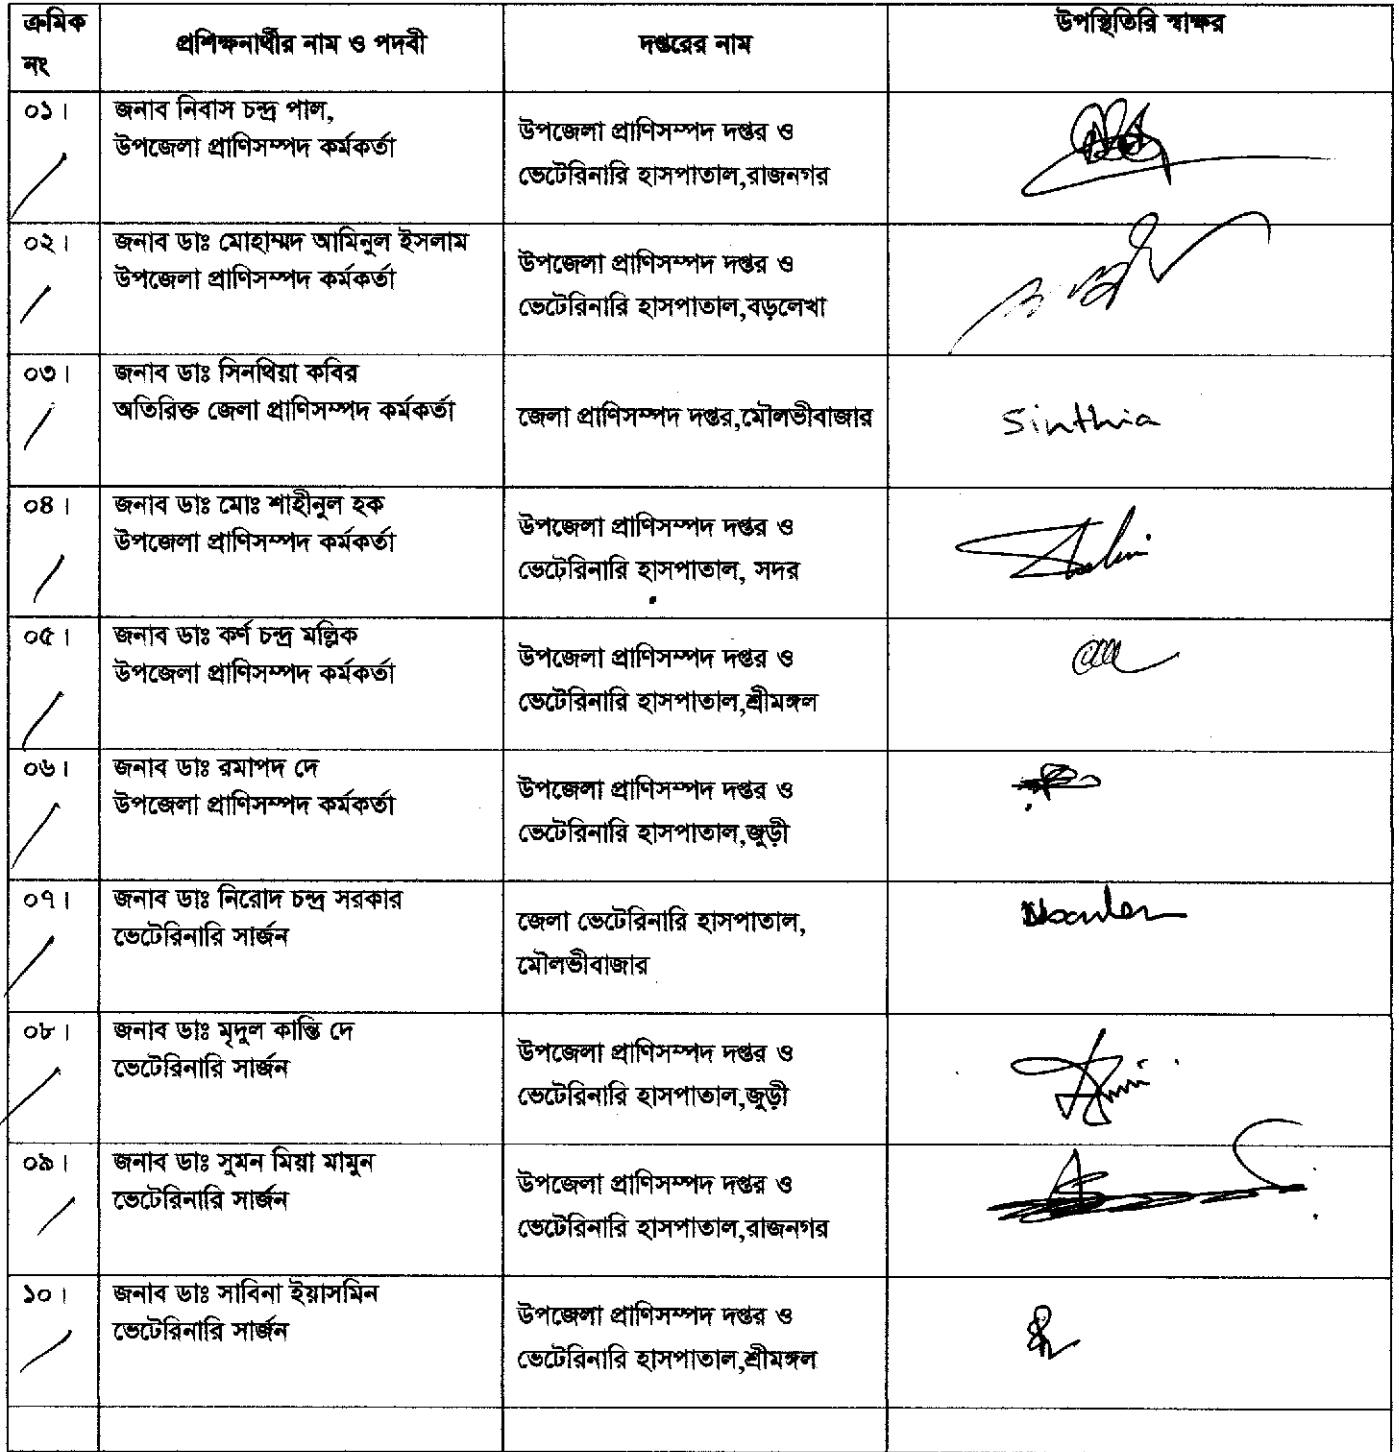 ক্রমিক নং
প্রশিক্ষনার্থীর নাম ও পদবী
দপ্তরের নাম
উপস্থিতিরি স্বাক্ষর
০১।
জনাব নিবাস চন্দ্র পাল,
উপজেলা প্রাণিসম্পদ কর্মকর্তা
উপজেলা প্রাণিসম্পদ দপ্তর ও
ভেটেরিনারি হাসপাতাল,রাজনগর
০২।
জনাব ডাঃ মোহাম্মদ আমিনুল ইসলাম
উপজেলা প্রাণিসম্পদ কর্মকর্তা
উপজেলা প্রাণিসম্পদ দপ্তর ও
ভেটেরিনারি হাসপাতাল,বড়লেখা
০৩।
জনাব ডাঃ সিনথিয়া কবির
অতিরিক্ত জেলা প্রাণিসম্পদ কর্মকর্তা
জেলা প্রাণিসম্পদ দপ্তর,মৌলভীবাজার
Sinthia
০৪।
জনাব ডাঃ মোঃ শাহীনুল হক
উপজেলা প্রাণিসম্পদ কর্মকর্তা
উপজেলা প্রাণিসম্পদ দপ্তর ও
ভেটেরিনারি হাসপাতাল, সদর
০৫।
জনাব ডাঃ কর্ণ চন্দ্র মল্লিক
উপজেলা প্রাণিসম্পদ কর্মকর্তা
উপজেলা প্রাণিসম্পদ দপ্তর ও
ভেটেরিনারি হাসপাতাল,শ্রীমঙ্গল
০৬।
জনাব ডাঃ রমাপদ দে
উপজেলা প্রাণিসম্পদ কর্মকর্তা
উপজেলা প্রাণিসম্পদ দপ্তর ও
ভেটেরিনারি হাসপাতাল,জুড়ী
০৭।
জনাব ডাঃ নিরোদ চন্দ্র সরকার
ভেটেরিনারি সার্জন
জেলা ভেটেরিনারি হাসপাতাল,
মৌলভীবাজার
০৮।
জনাব ডাঃ মৃদুল কান্তি দে
ভেটেরিনারি সার্জন
উপজেলা প্রাণিসম্পদ দপ্তর ও
ভেটেরিনারি হাসপাতাল,জুড়ী
০৯।
জনাব ডাঃ সুমন মিয়া মামুন
ভেটেরিনারি সার্জন
উপজেলা প্রাণিসম্পদ দপ্তর ও
ভেটেরিনারি হাসপাতাল,রাজনগর
১০।
জনাব ডাঃ সাবিনা ইয়াসমিন
ভেটেরিনারি সার্জন
উপজেলা প্রাণিসম্পদ দপ্তর ও
ভেটেরিনারি হাসপাতাল,শ্রীমঙ্গল